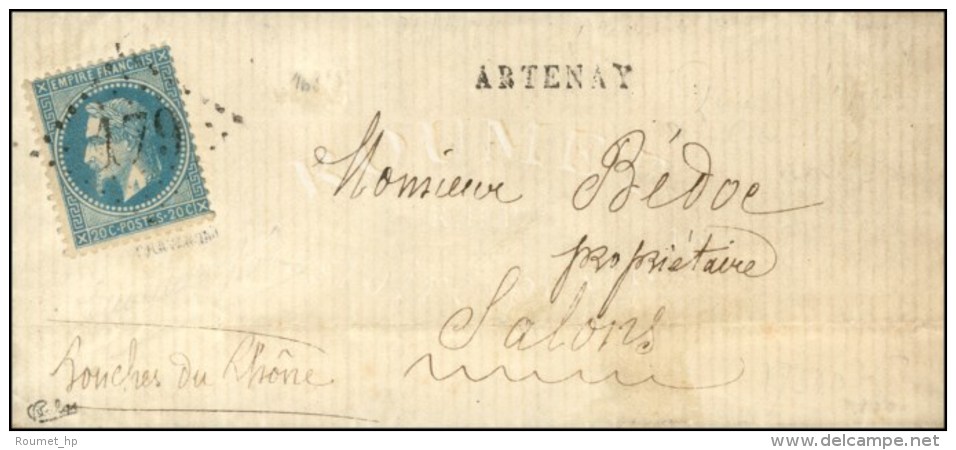 EMPIRE FRANÇAIS
179
20C-POSTES-20C
ARTENAY
Monsieur Bédoc
propriétaire
Salons
Bouches du Rhône
Roumet_hp
© delcampe.net